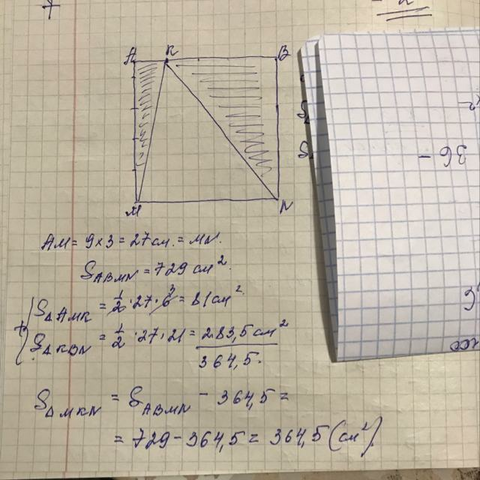 A K B
M N
AM = 9 x 3 = 27 см. = MN.
S ABMN = 729 см².
S△AMK = 1/2 · 27 · 6 3 = 81 см²
+
S△KBN = 1/2 · 27 · 21 = 283,5 см²
364,5.
S△MKN = S ABMN - 364,5 =
= 729 - 364,5 = 364,5 (см²)
36 -